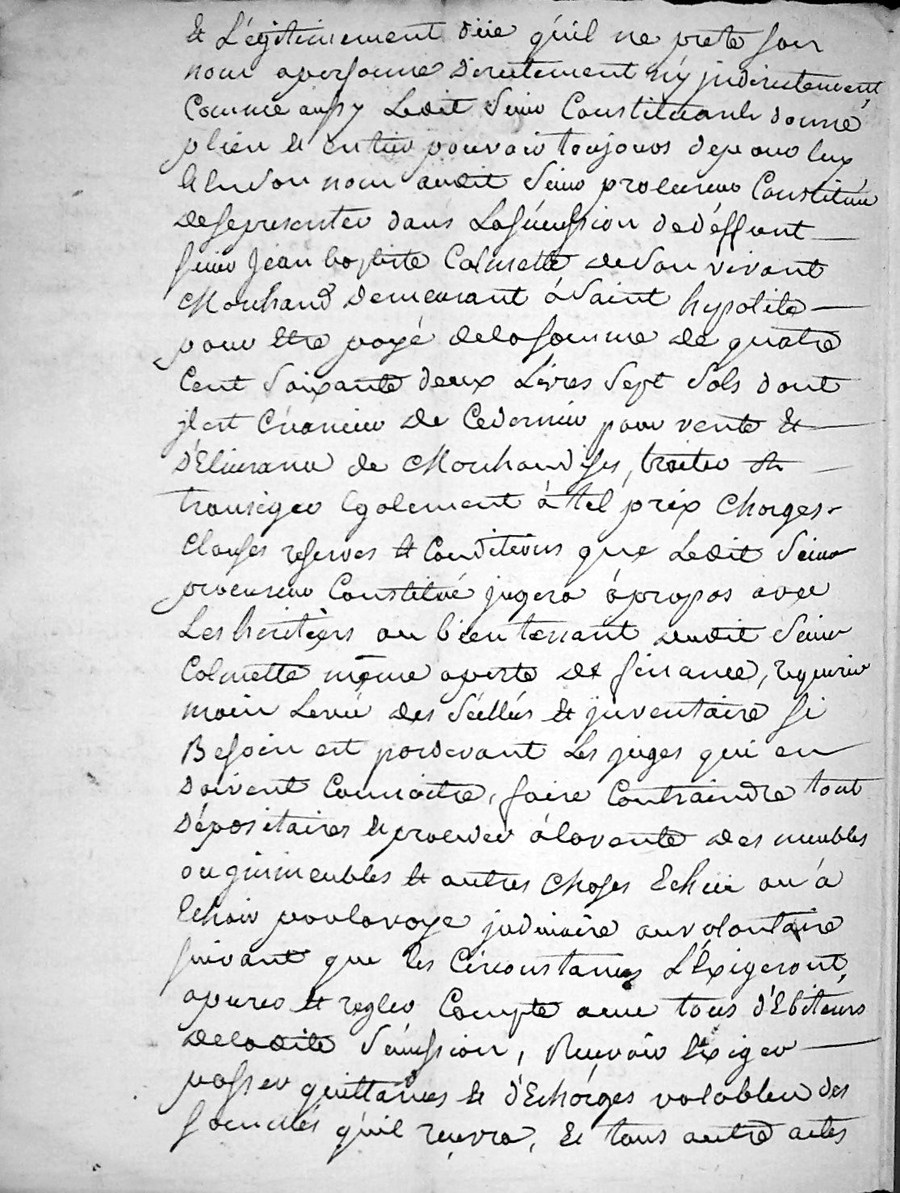 et Légitimement düe qu'il ne prete son
nom apersonne directement n'y jndirectement,
Comme aussy Ledit Sieur Constituant donne
plein et entier pouvoir toujours depour luy
et En son nom audit Sieur procureur Constitué
de sepresenter dans La sucession de déffunt
sieur Jean baptiste Colmette de son vivant
Marchand Demeurant à Saint hypolite
pour Etre payé de la somme de quatre
Cent Soixante deux Livres Sept Sols dont
jl est Créancier de Ce dernier pour vente et
d'Elivrance de Marchandises, traiter et
transiger Egalement à tel prix Charges
Clauses reserves et Conditions que Ledit Sieur
procureur Constitué jugera à propos avec
Les héritiers ou bien tenant dudit Sieur
Colmette même aperte de finance, requerir
main Levée des Séellés et jnventaire si
Besoin est pardevant Les juges qui en
doivent Connaitre, faire Contraindre tout
Dépositaires et proceder à la vante des meubles
ou jmmeubles et autres choses Echüe ou à
Echoir par la voye judiciaire ou volontaire
suivant que les Circonstances L'Exigeront,
apurer et regler Compte avec tous d'Ebiteurs
de ladite Sucession, Recevoir Exiger
passer quittances et d'Echarges valables des
sommes qu'il reçevra, et tous autre actes